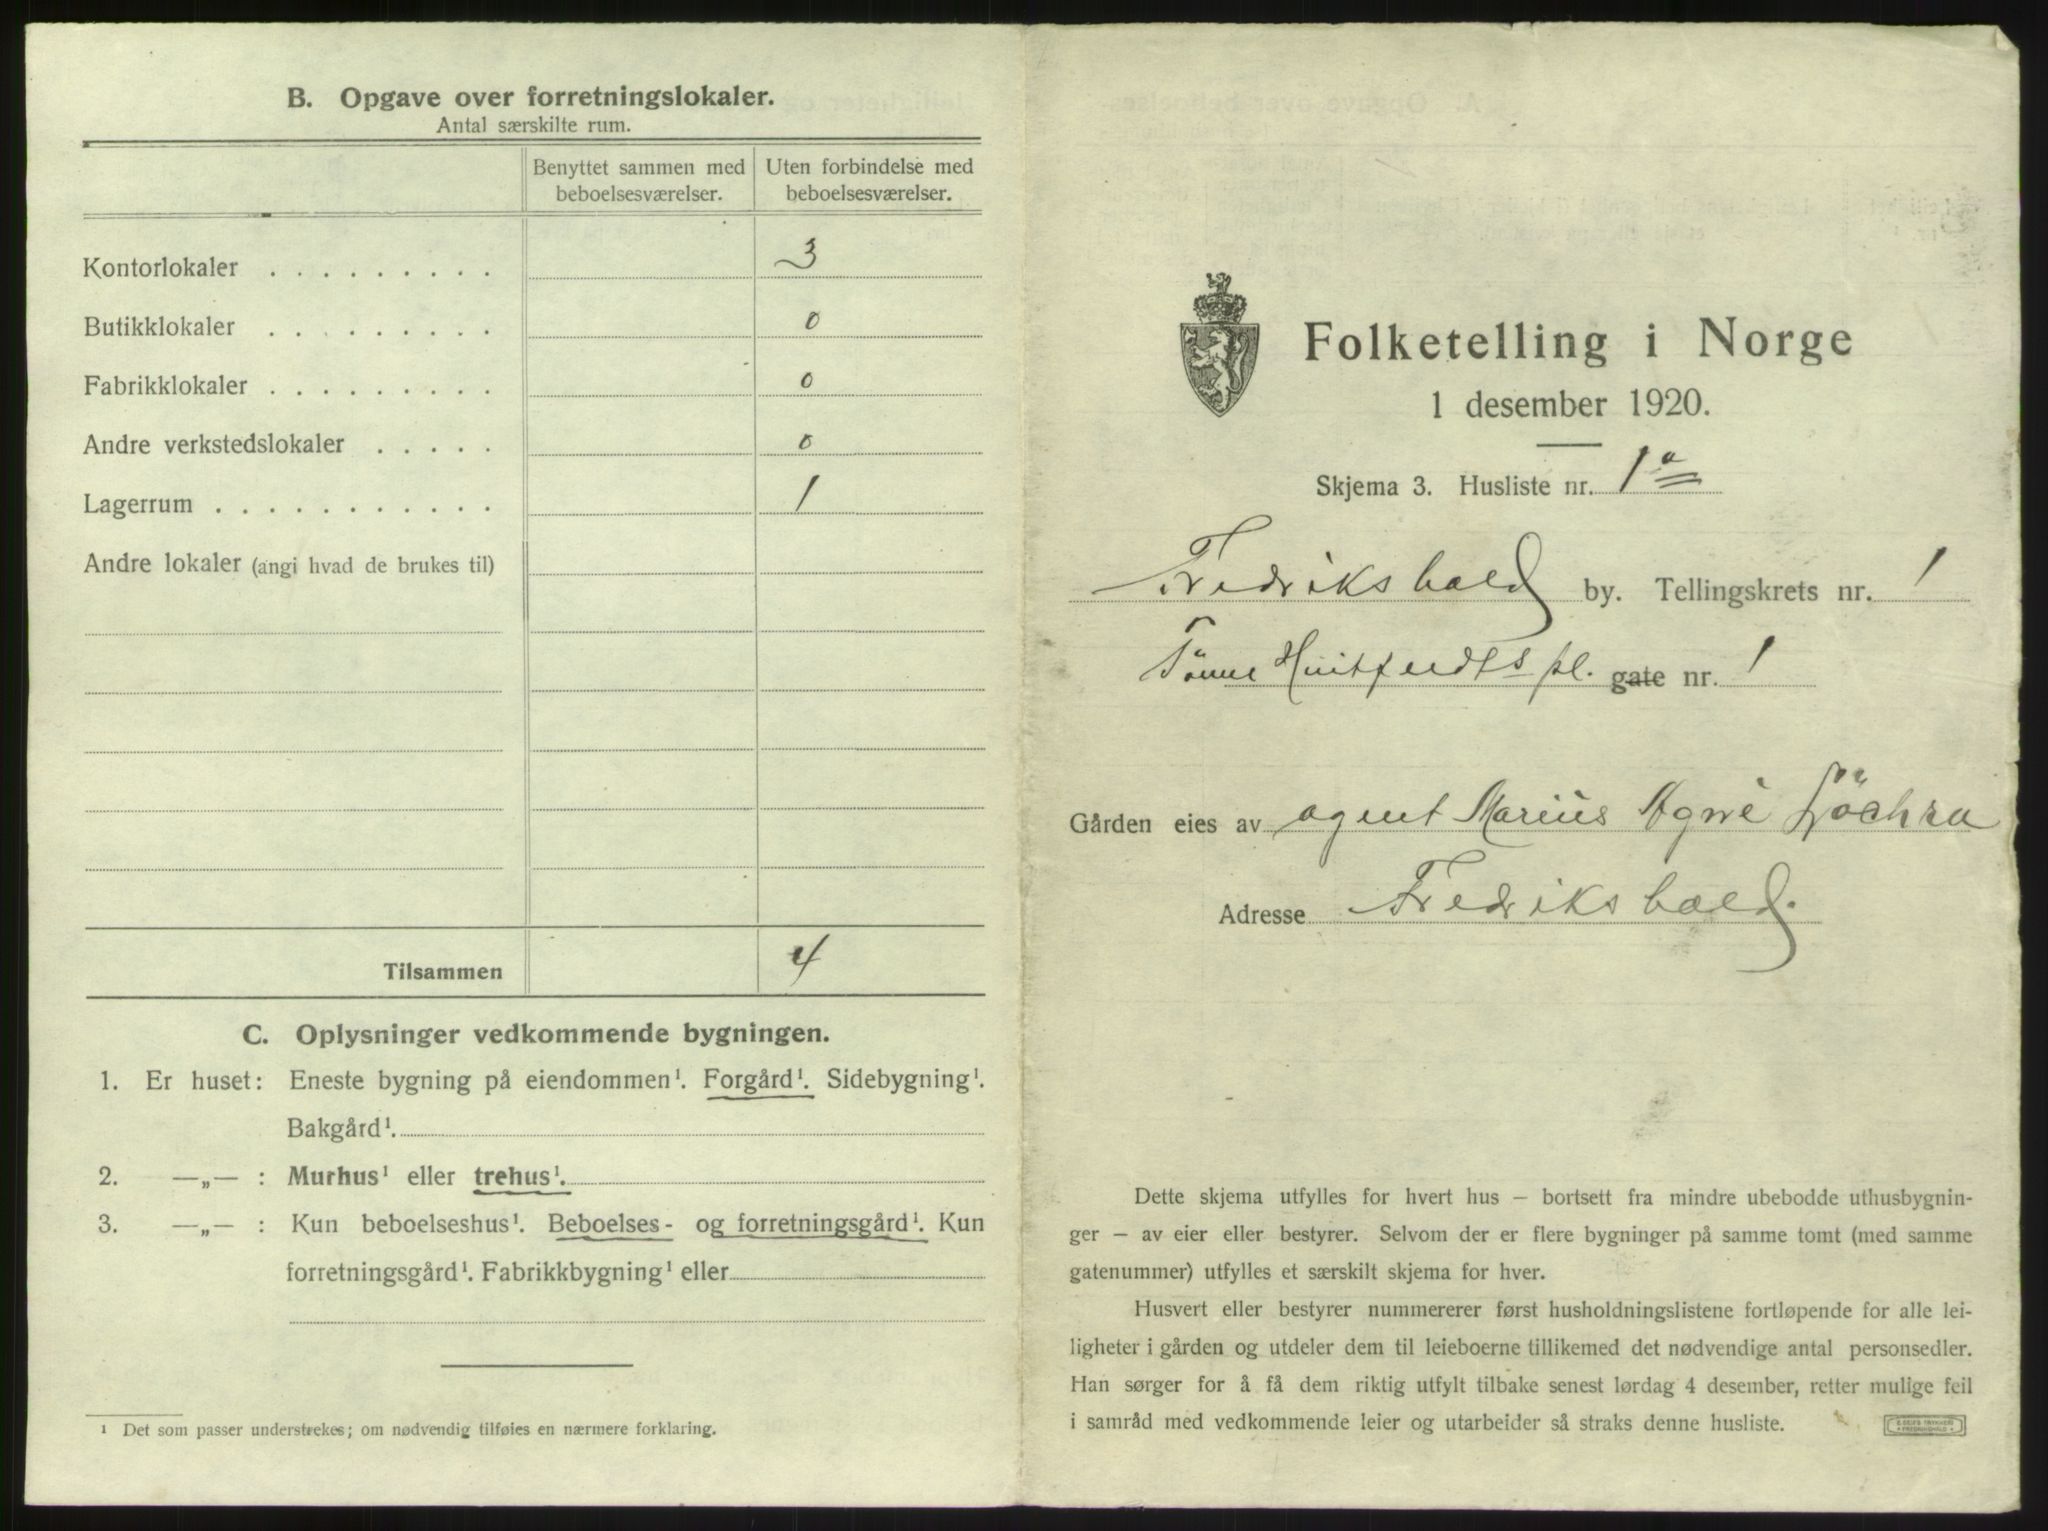 B. Opgave over forretningslokaler.
Antal særskilte rum.
Benyttet sammen med beboelsesværelser.
Uten forbindelse med beboelsesværelser.
Kontorlokaler . . . . . . . . . 3
Butikklokaler . . . . . . . . . 0
Fabrikklokaler . . . . . . . . . 0
Andre verkstedslokaler . . . . . 0
Lagerrum . . . . . . . . . . . 1
Andre lokaler (angi hvad de brukes til)
Tilsammen 4
C. Oplysninger vedkommende bygningen.
1. Er huset: Eneste bygning på eiendommen¹. Forgård¹. Sidebygning¹.
Bakgård¹.
2. —„— : Murhus¹ eller trehus¹.
3. —„— : Kun beboelseshus¹. Beboelses- og forretningsgård¹. Kun
forretningsgård¹. Fabrikkbygning¹ eller
¹ Det som passer understrekes; om nødvendig tilføies en nærmere forklaring.
Folketelling i Norge
1 desember 1920.
Skjema 3. Husliste nr. 1a
Fredrikshald by. Tellingskrets nr. 1
Tönne Huitfeldts pl. gate nr. 1
Gården eies av agent Marius Agne
Adresse Fredrikshald.
Dette skjema utfylles for hvert hus – bortsett fra mindre ubebodde uthusbygnin-
ger – av eier eller bestyrer. Selvom der er flere bygninger på samme tomt (med samme
gatenummer) utfylles et særskilt skjema for hver.
Husvert eller bestyrer nummererer først husholdningslistene fortløpende for alle lei-
ligheter i gården og utdeler dem til leieboerne tillikemed det nødvendige antal personsedler.
Han sørger for å få dem riktig utfylt tilbake senest lørdag 4 desember, retter mulige feil
i samråd med vedkommende leier og utarbeider så straks denne husliste.